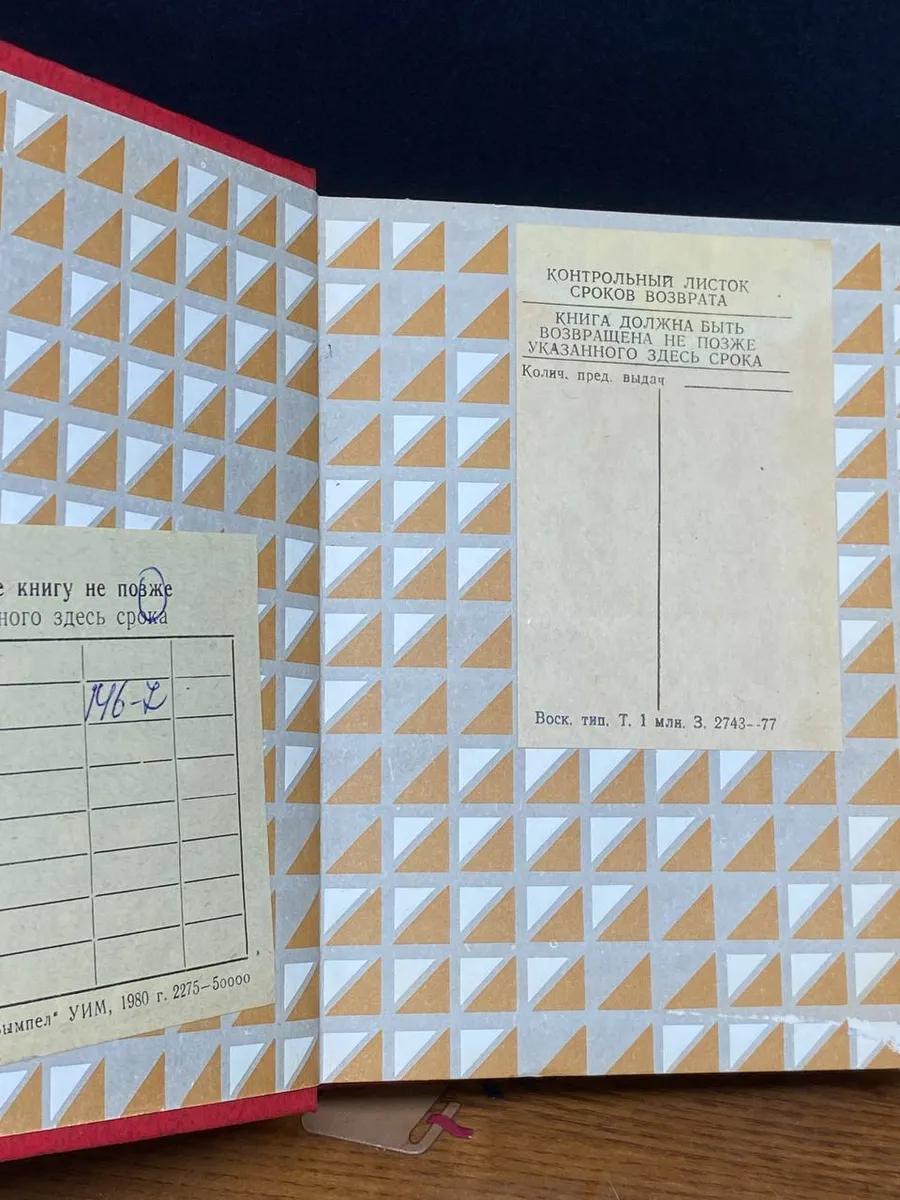 е книгу не позже
ного здесь срока
146-
ымпел" УИМ, 1980 г. 2275—50000
КОНТРОЛЬНЫЙ ЛИСТОК
СРОКОВ ВОЗВРАТА
КНИГА ДОЛЖНА БЫТЬ
ВОЗВРАЩЕНА НЕ ПОЗЖЕ
УКАЗАННОГО ЗДЕСЬ СРОКА
Колич. пред. выдач
Воск. тип. Т. 1 млн. З. 2743--77